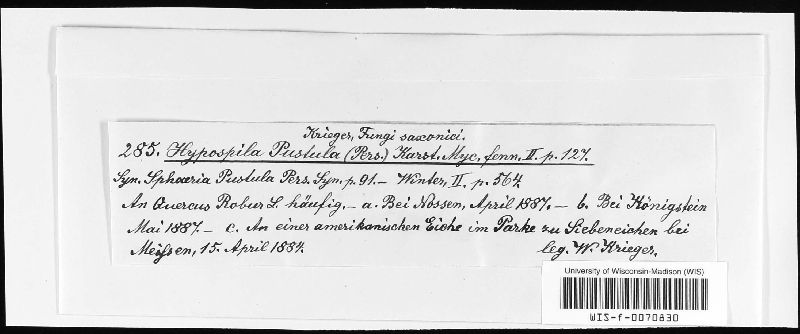 Krieger, Fungi saxonici.
285. Hypospila Pustula (Pers.) Karst. Myc. fenn. II. p. 127.
Syn. Sphaeria Pustula Pers. Syn. p. 91. – Winter, II. p. 564.
An Quercus Robur L. häufig. – a. Bei Nossen, April 1887. – b. Bei Königstein
Mai 1887. – c. An einer amerikanischen Eiche im Parke zu Siebeneichen bei
Meißen, 15. April 1884.
leg. W. Krieger.
University of Wisconsin-Madison (WIS)
WIS-f-0070830